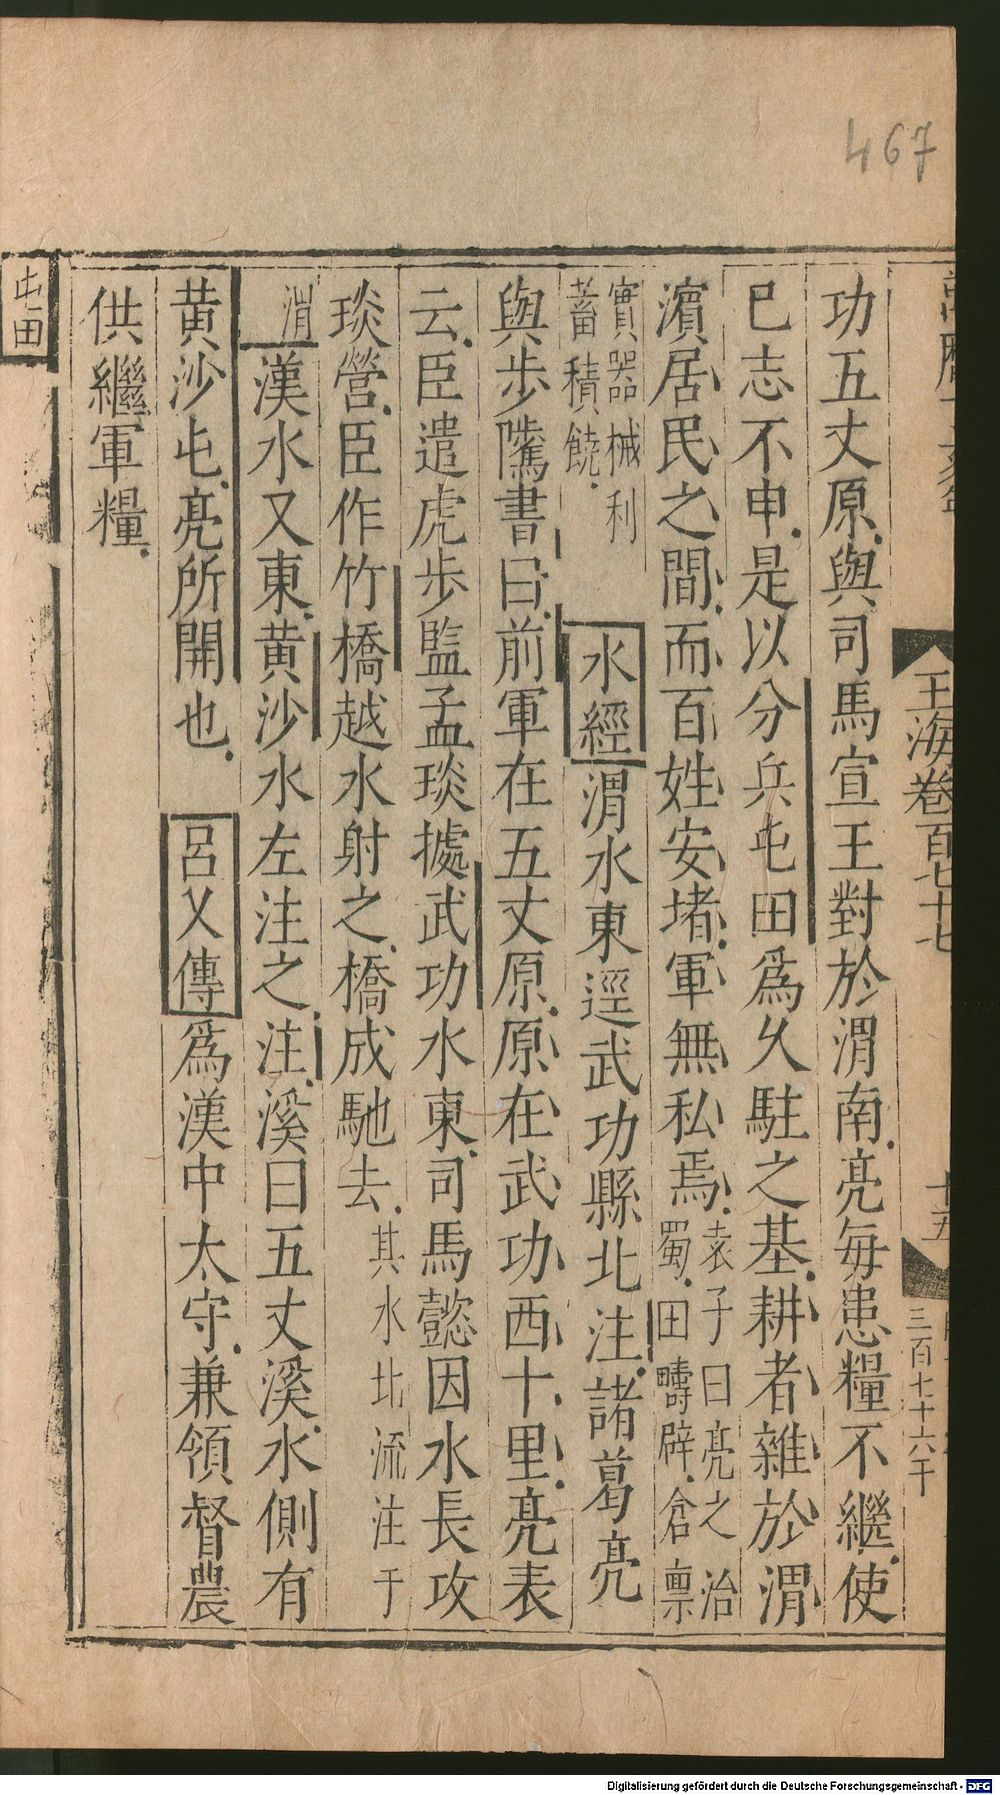 467
玉海卷百七十七
十五
三百七十六千
功五丈原與司馬宣王對於渭南亮每患糧不繼使
已志不申是以分兵屯田爲久駐之基耕者雜於渭
濱居民之間而百姓安堵軍無私焉袁子曰亮之治
蜀田疇辟倉稟
實器械利
蓄積饒
水經渭水東逕武功縣北注諸葛亮
與步騭書曰前軍在五丈原原在武功西十里亮表
云臣遣虎步監孟琰據武功水東司馬懿因水長攻
琰營臣作竹橋越水射之橋成馳去其水北流注于
渭漢水又東黃沙水左注之注溪曰五丈溪水側有
黃沙屯亮所開也呂乂傳爲漢中太守兼領督農
供繼軍糧
屯田
Digitalisierung gefördert durch die Deutsche Forschungsgemeinschaft - DFG